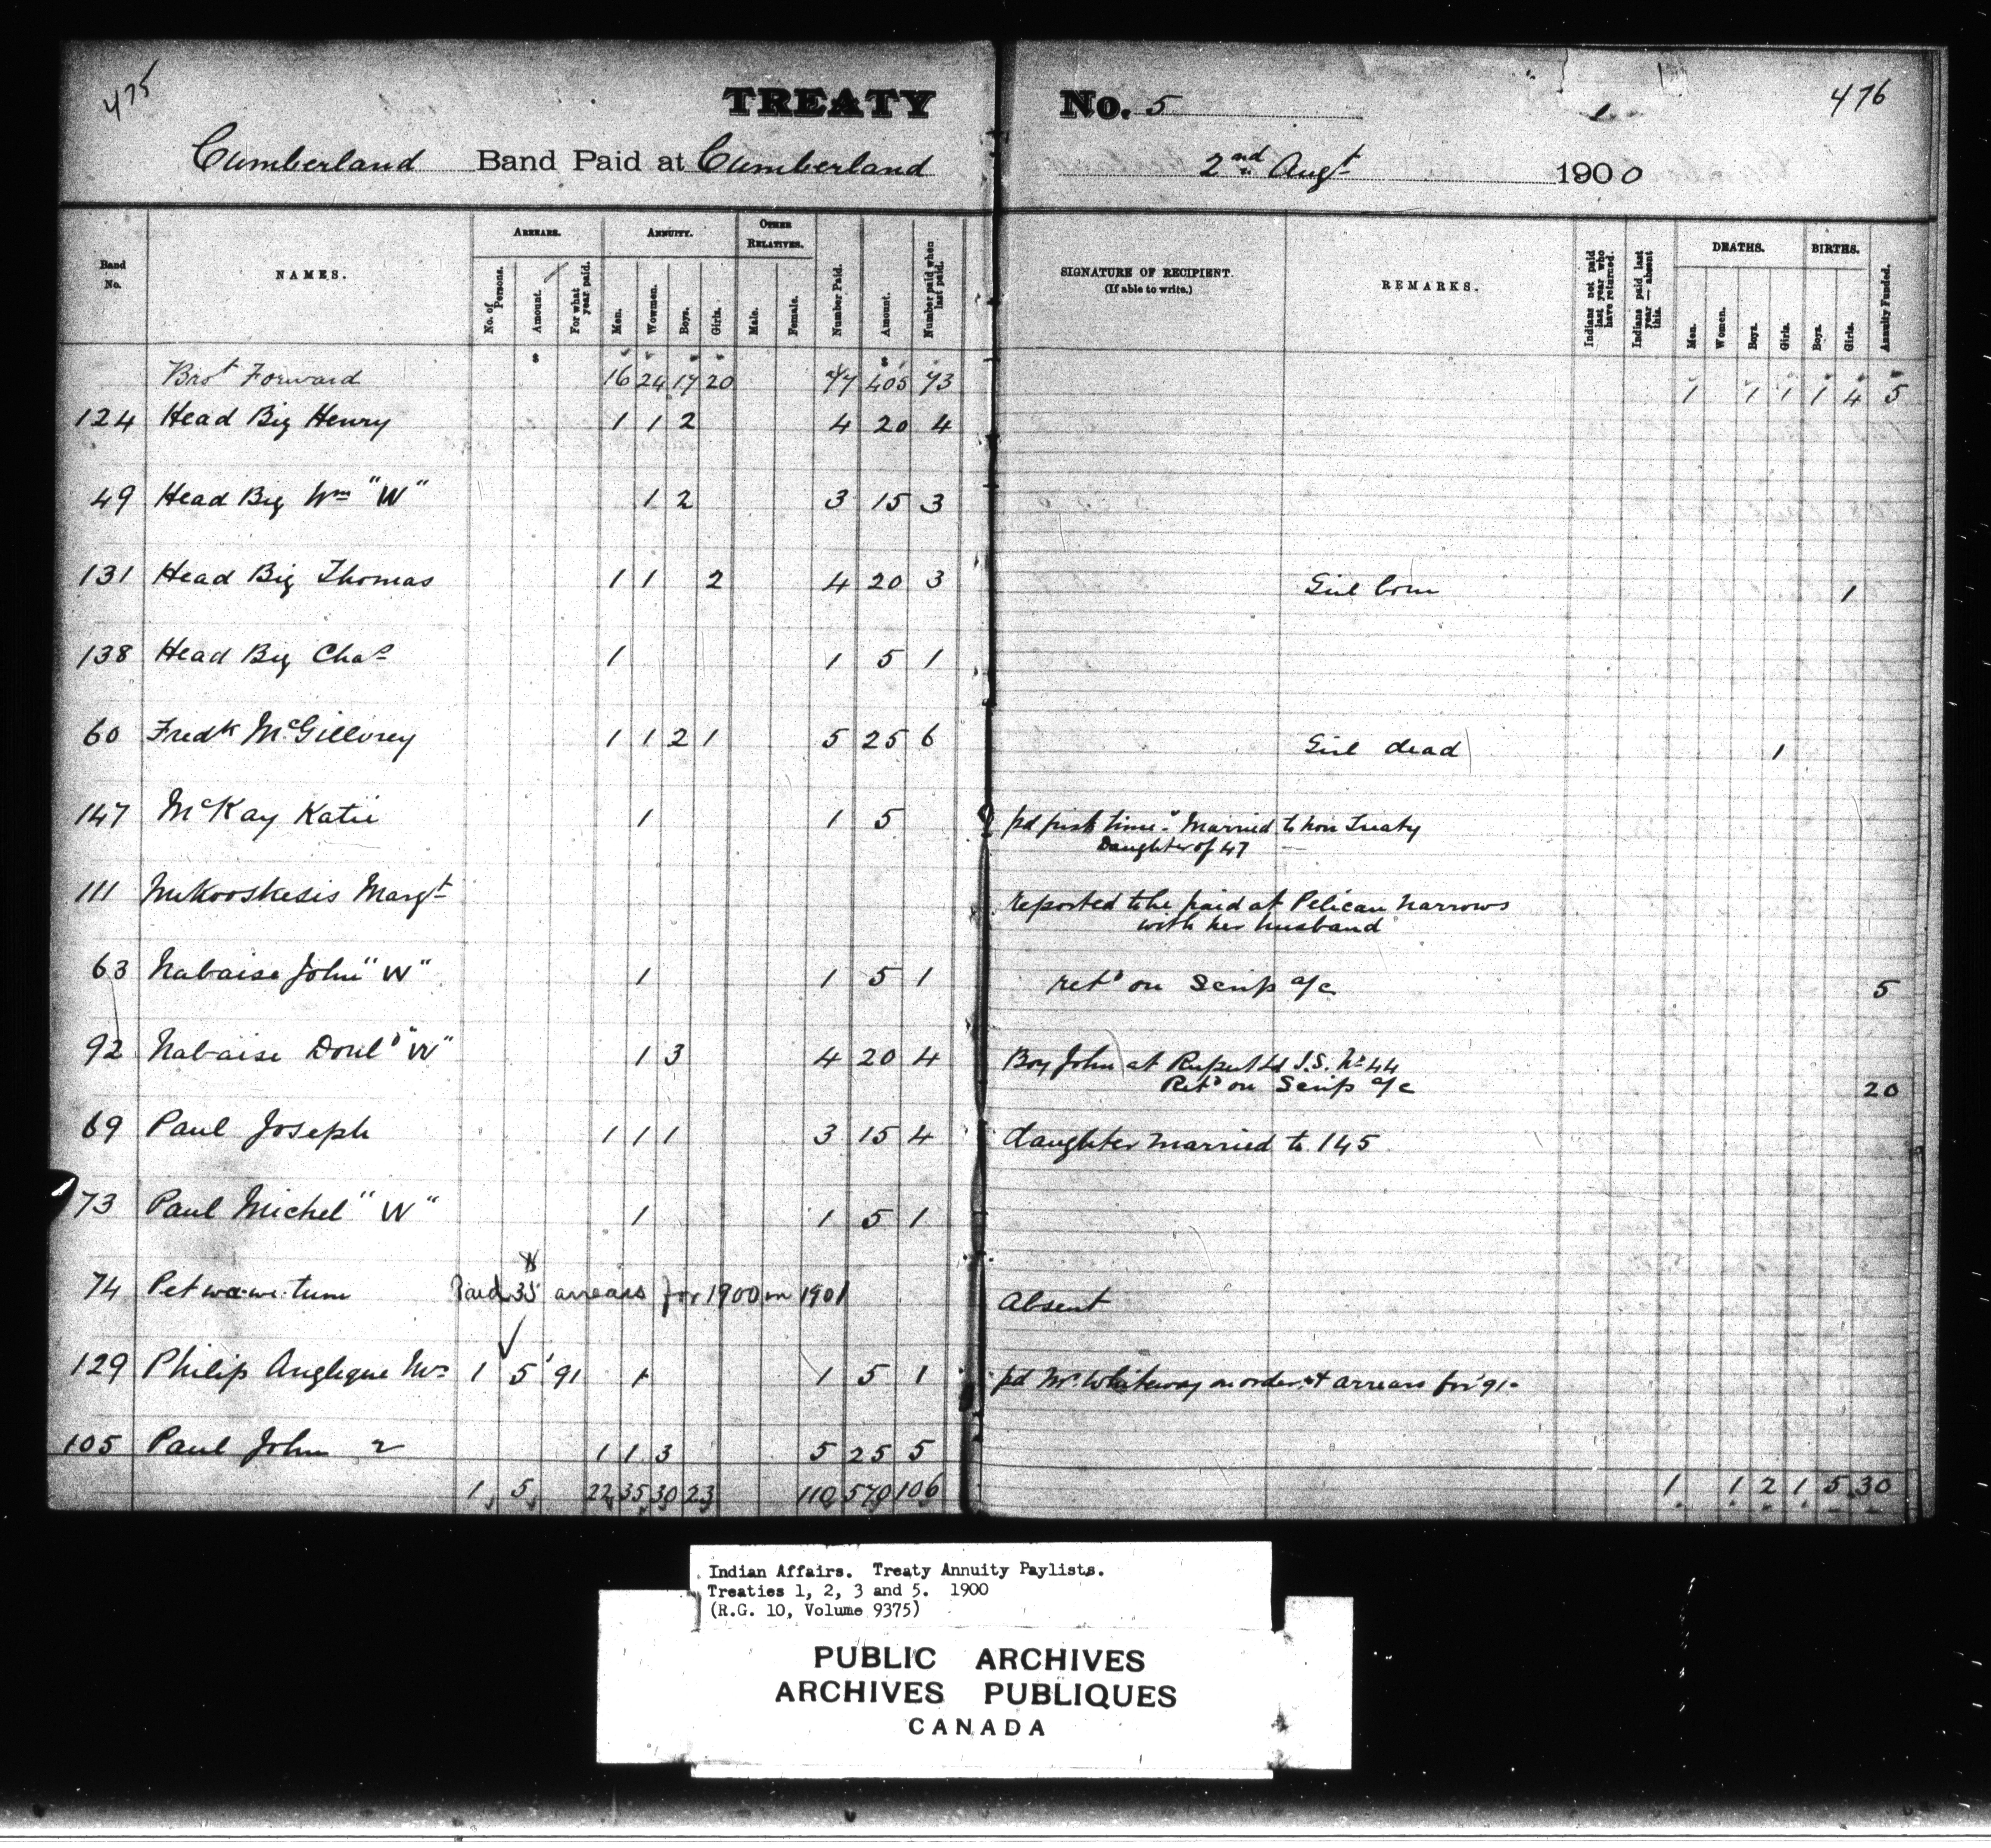 475
TREATY No. 5
476
Cumberland Band Paid at Cumberland 2nd Augt 1900
Band No.
NAMES.
ARREARS.
No. of Persons.
Amount.
For what year paid.
ANNUITY.
Men.
Wowmen.
Boys.
Girls.
OTHER RELATIVES.
Male.
Female.
Number Paid.
Amount.
Number paid when last paid.
SIGNATURE OF RECIPIENT.
(If able to write.)
REMARKS.
Indians not paid last year who have returned.
Indians paid last year — absent this.
DEATHS.
Men.
Women.
Boys.
Girls.
BIRTHS.
Boys.
Girls.
Annuity Funded.
$ $
Brot Forward 16 24 17 20 77 405 73 1 1 1 1 4 5
124 Head Big Henry 1 1 2 4 20 4
49 Head Big Wm "W" 1 2 3 15 3
131 Head Big Thomas 1 1 2 4 20 3 Girl born 1
138 Head Big Chas 1 1 5 1
60 Fredk McGillvrey 1 1 2 1 5 25 6 Girl dead 1
147 McKay Katie 1 1 5 pd first time. Married to non Treaty
Daughter of 47
111 Margt reported to be paid at Pelican Narrows
with her husband
63 Nabaise John "W" 1 1 5 1 retd on Scrip a/c 5
92 Nabaise Donld "W" 1 3 4 20 4 Boy John at Rupert Ld I.S. No 44
Retd on Scrip a/c 20
69 Paul Joseph 1 1 1 3 15 4 daughter married to 145
73 Paul Michel "W" 1 1 5 1
74 Petwa-we-tum Paid 35 arrears for 1900 in 1901 Absent
129 Philip Anglique Mrs 1 5 91 1 1 5 1 pd Mr Whiteway on order & arrears for '91-
105 Paul John 2 1 1 3 5 25 5
1 5 22 35 30 23 110 570 106 1 1 2 1 5 30
Indian Affairs. Treaty Annuity Paylists.
Treaties 1, 2, 3 and 5. 1900
(R.G. 10, Volume 9375)
PUBLIC ARCHIVES
ARCHIVES PUBLIQUES
CANADA